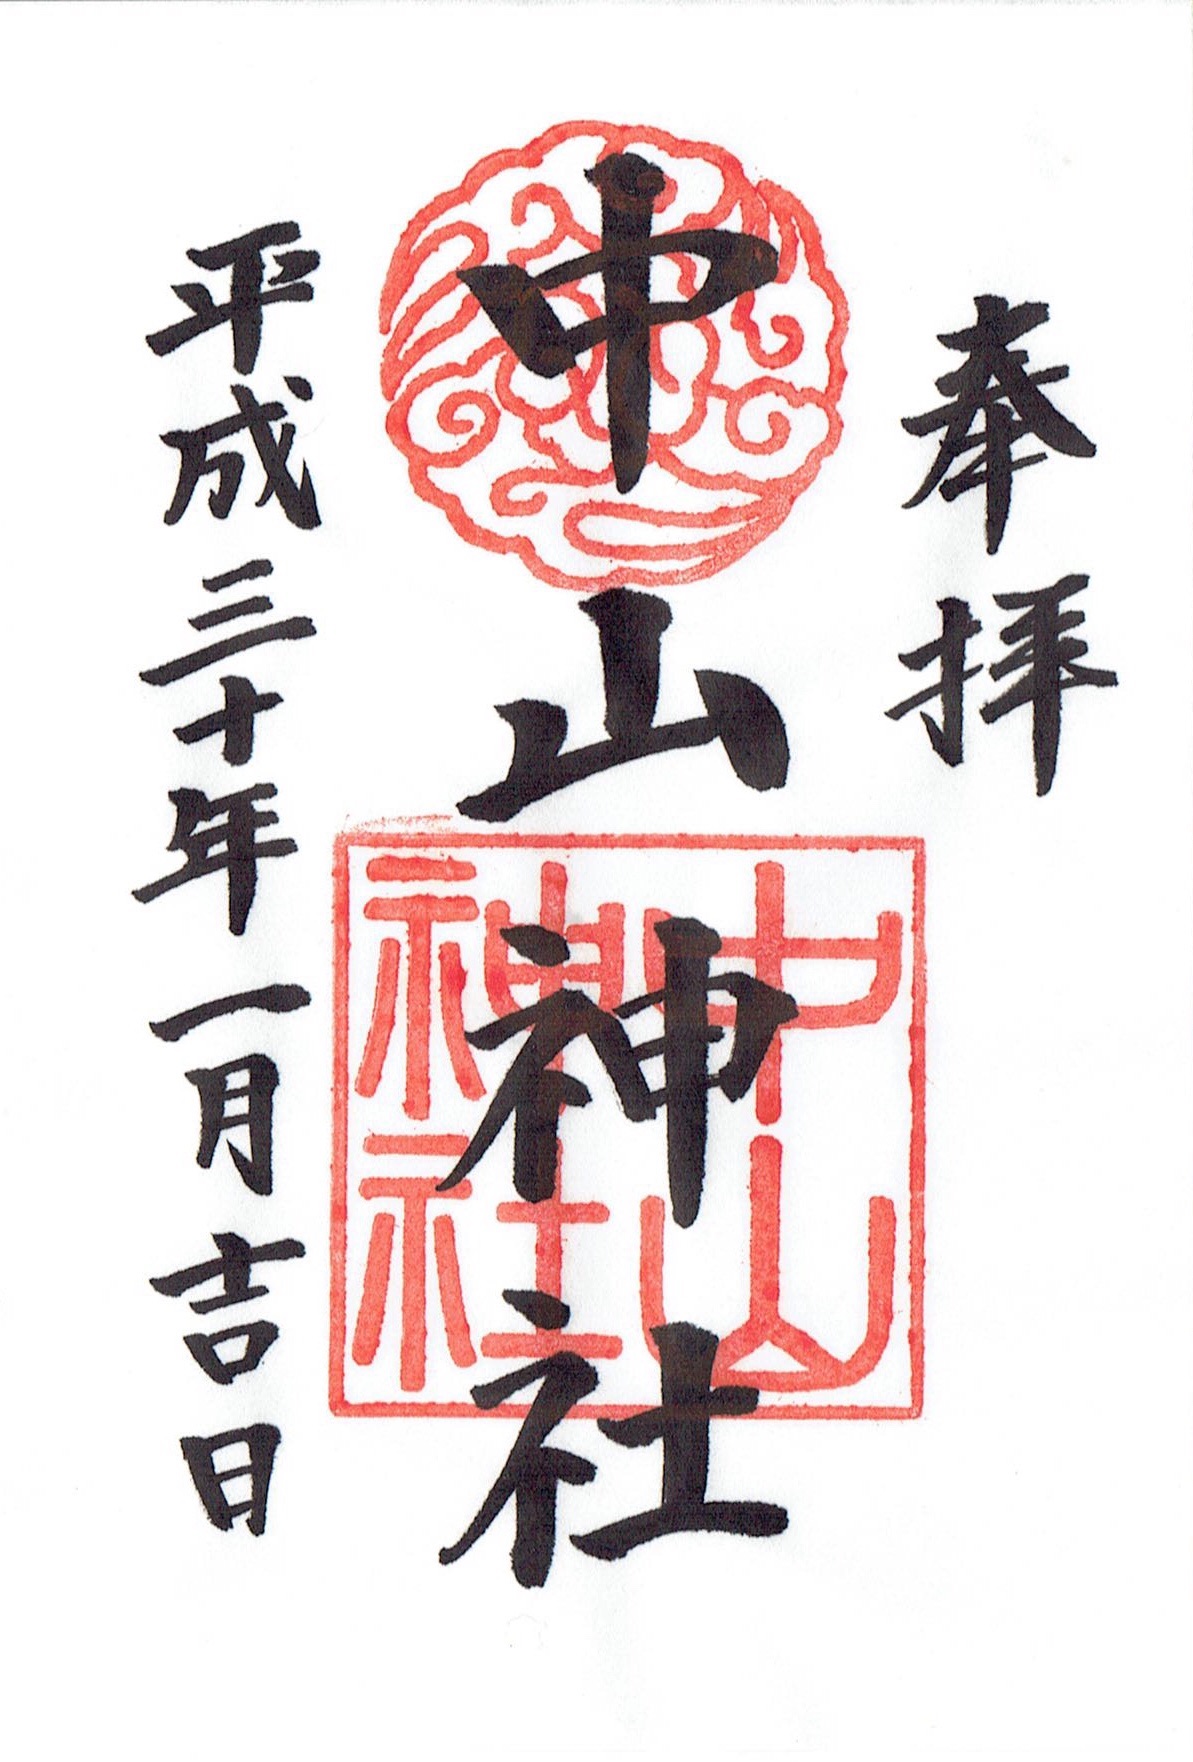 奉拝
中山神社
中山
神社
平成三十年一月吉日